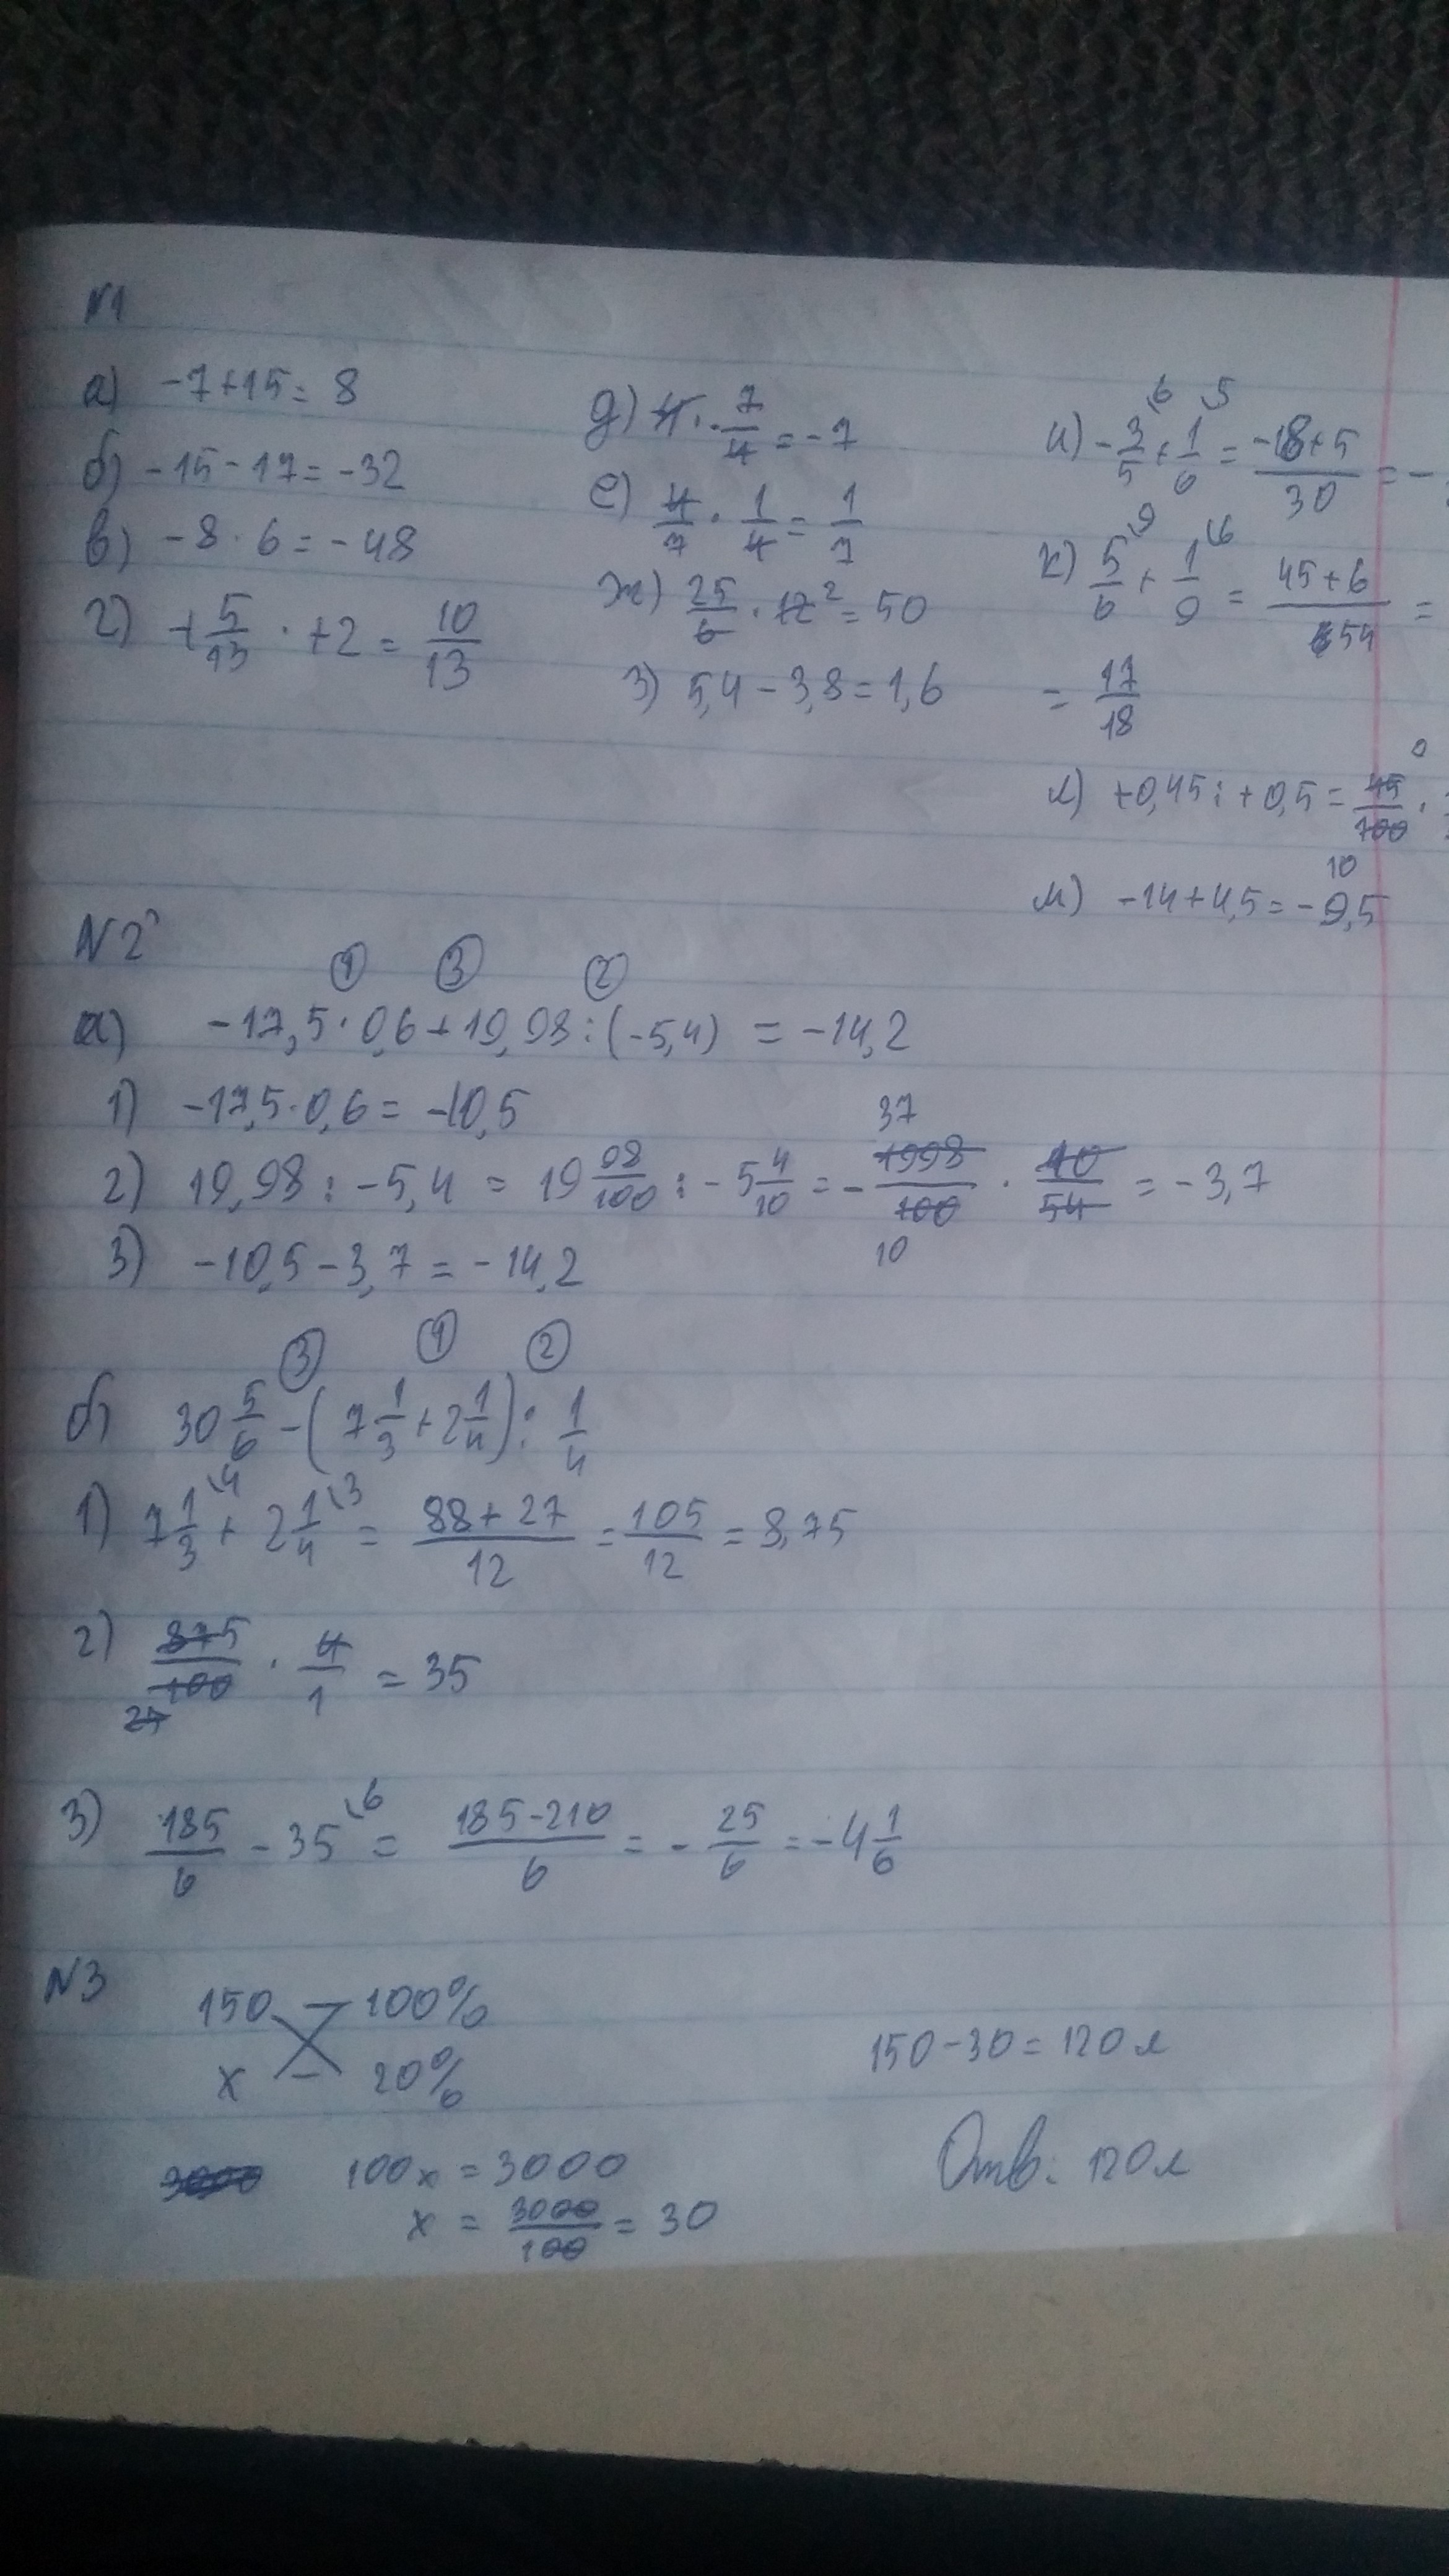 N1
а) -7+15= 8
б) -15-17=-32
в) -8·6=-48
г) +5/13 · +2 = 10/13
д) 4·-7/4=-7
е) 4/7 · 1/4 = 1/7
ж) 25/6 · 12 2 = 50
з) 5,4-3,8=1,6
и) -3/5 \6 + 1/6 \5 = -18+5/30 = -
к) 5/6 \9 + 1/9 \6 = 45+6/54 =
= 17/18
л) +0,45:+0,5= 45/100 ·
10
м) -14+4,5=-9,5
N2
① ③ ②
а) -17,5·0,6+19,98:(-5,4) = -14,2
1) -17,5·0,6= -10,5
2) 19,98:-5,4 = 19 98/100 : -5 4/10 = - 37 1998/100 10 · 10/54 = -3,7
3) -10,5-3,7=-14,2
③ ① ②
б) 30 5/6 - (7 1/3 + 2 1/4) : 1/4
1) 7 1/3 \4 + 2 1/4 \3 = 88+27/12 = 105/12 = 8,75
2) 875/100 25 · 4/1 = 35
3) 185/6 - 35 \6 = 185-210/6 = - 25/6 = -4 1/6
N3
150 - 100%
x - 20%
100x = 3000
x = 3000/100 = 30
150-30=120л
Отв: 120л